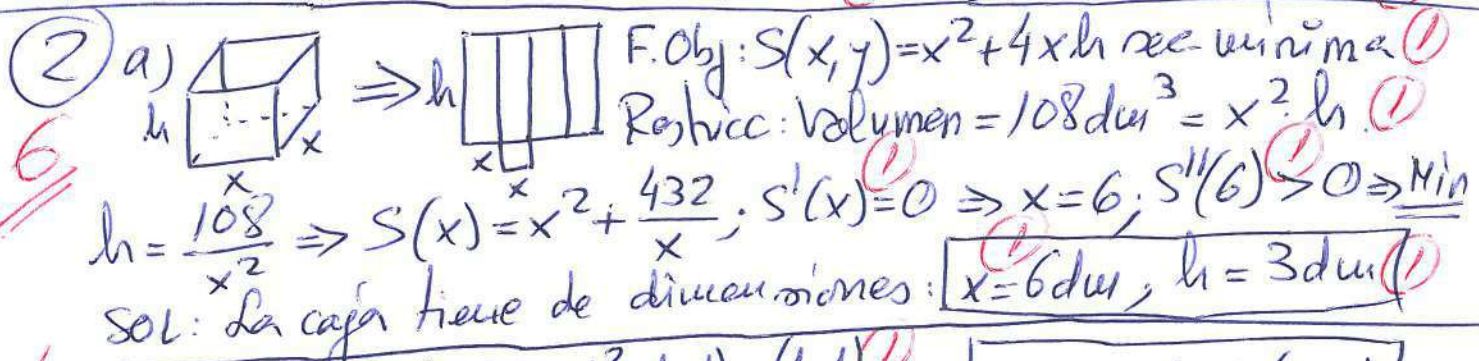 ② a) h x x ⇒ h x x F.Obj: S(x,y)=x²+4xh sea mínima ①
Restricc: Volumen = 108dm³ = x²·h ①
6
h = 108/x² ⇒ S(x) = x² + 432/x ; S'(x)=0 ① ⇒ x=6; S''(6)>0 ① ⇒ Min
SOL: La caja tiene de dimensiones: x=6dm ①, h=3dm ①